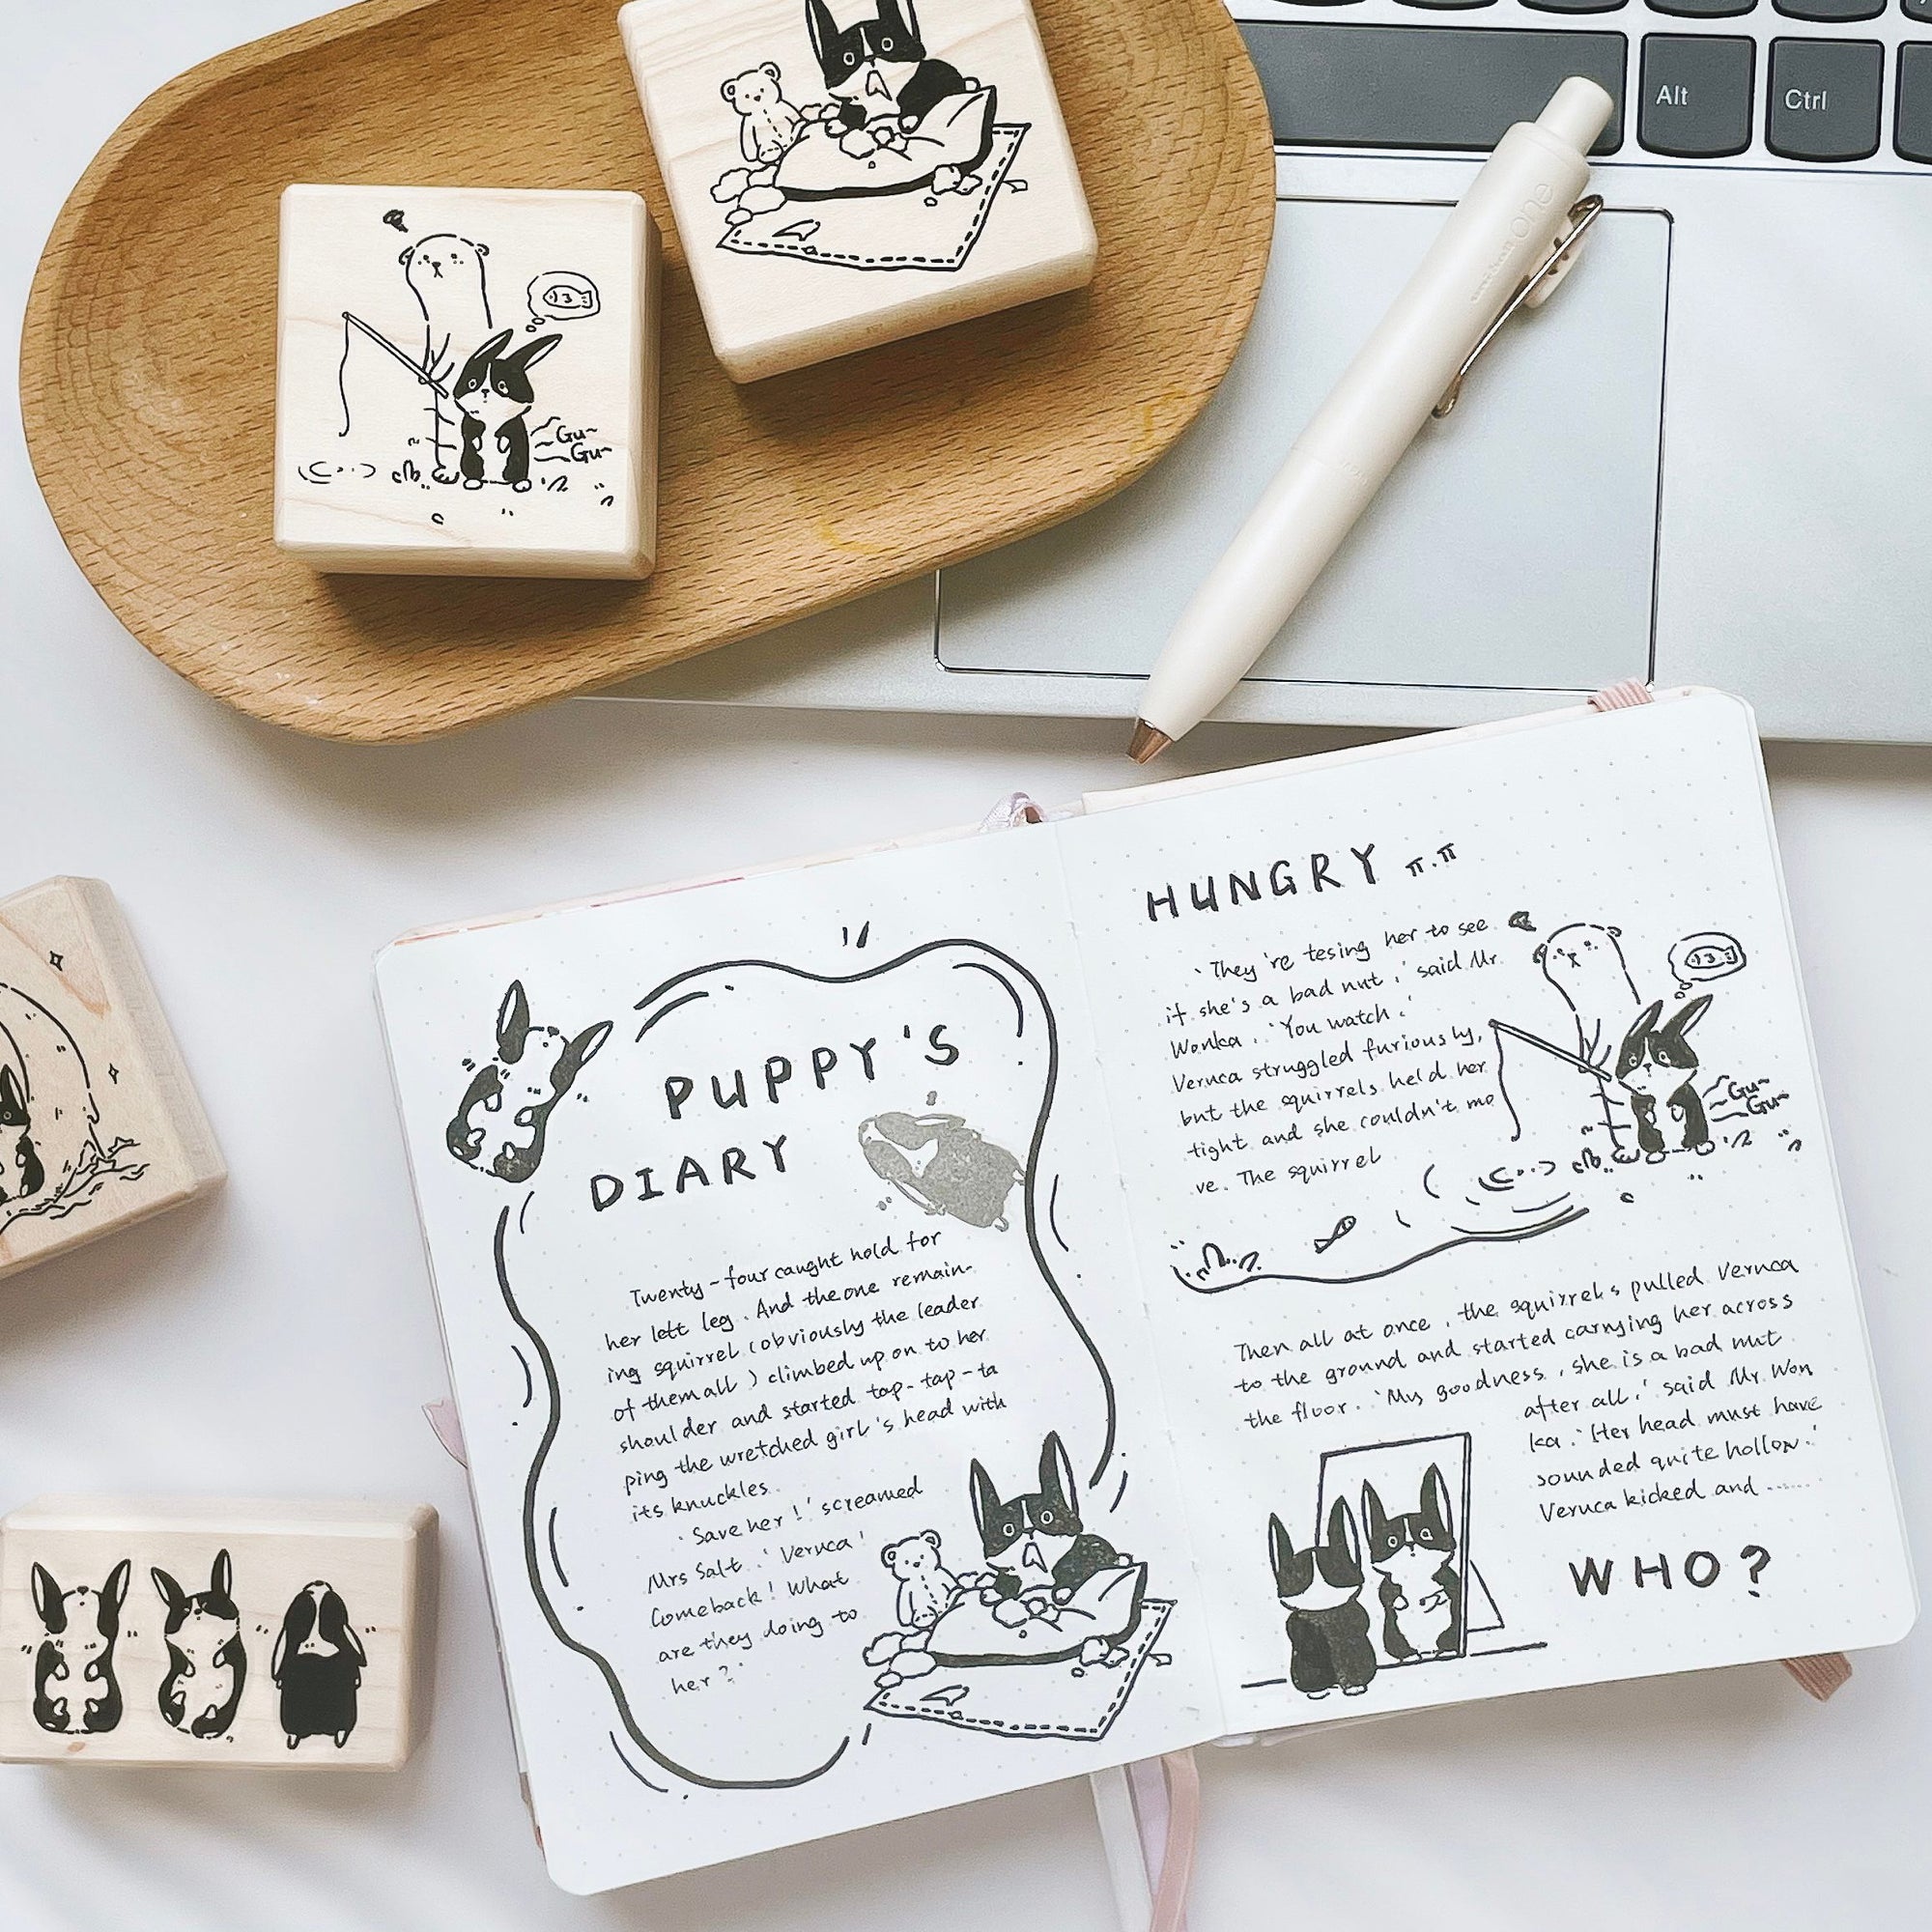 Alt
Ctrl
one
Gu~
Gu~
PUPPY'S
DIARY
Twenty-four caught hold for
her left leg. And the one remain-
ing squirrel (obviously the leader
of them all) climbed up on to her
shoulder and started tap-tap-ta
ping the wretched girl's head with
its knuckles.
'Save her!' screamed
Mrs Salt. 'Veruca'
Comeback! What
are they doing to
her?'
HUNGRY π.π
'They're tesing her to see
if she's a bad nut,' said Mr.
Wonka. 'You watch.'
Veruca struggled furiously,
but the squirrels held her
tight and she couldn't mo
ve. The squirrel
Gu~
Gu~
Then all at once, the squirrels pulled Veruca
to the ground and started carrying her across
the floor. 'My goodness, she is a bad nut
after all,' said Mr. Won
ka. 'Her head must have
sounded quite hollow.'
Veruca kicked and ......
WHO?